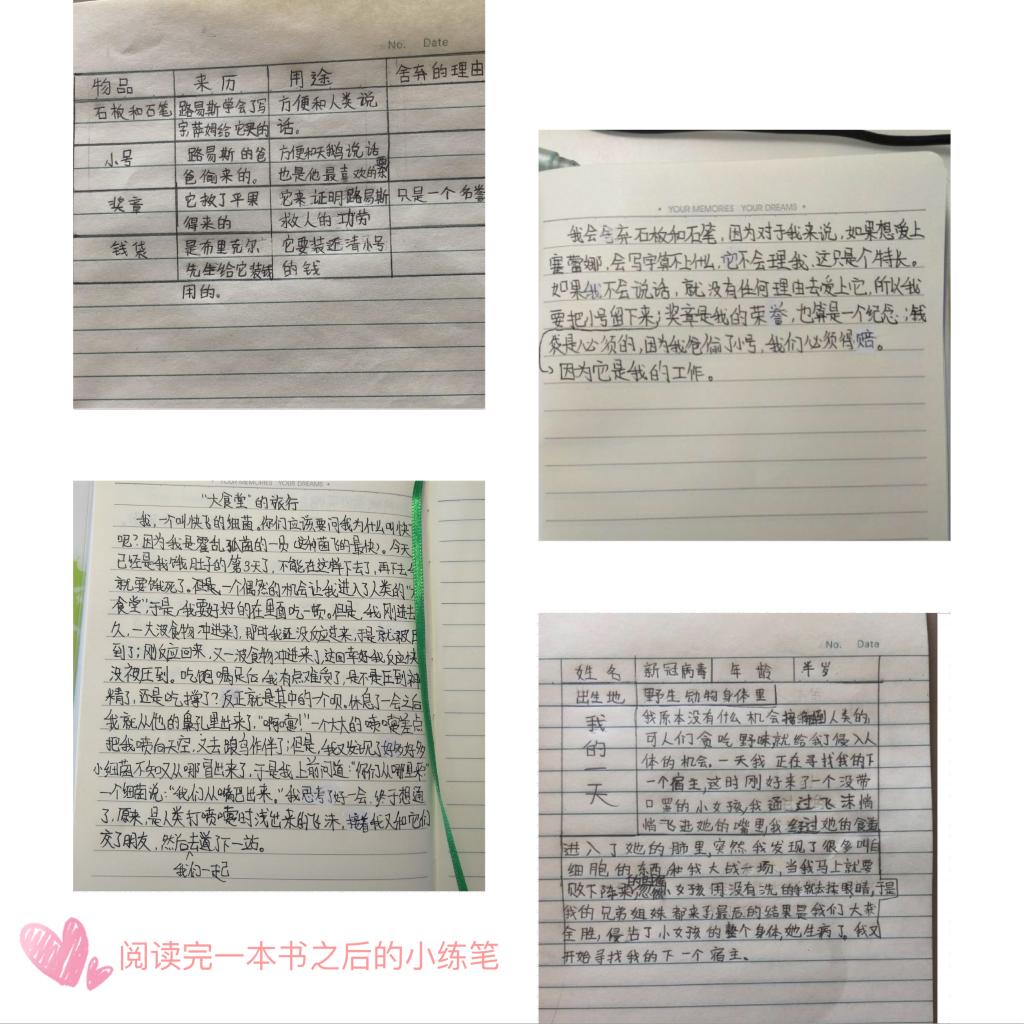 No. Date
物品 来历 用途 舍弃的理由
石板和石笔 路易斯学会了写 方便和人类说
字,萨姆给它买的 话。
小号 路易斯的爸 方便和天鹅说话
爸偷来的。 也是他最喜欢的
奖章 它救了苹果 它来证明路易斯 只是一个名誉
得来的 救人的功劳
钱袋 是布里克尔 它要装还清小号
先生给它装钱 的钱
用的。
• YOUR MEMORIES YOUR DREAMS •
我会舍弃石板和石笔,因为对于我来说,如果想爱上
塞蕾娜,会写字算不上什么,它不会理我,这只是个特长。
如果我不会说话,就没有任何理由去爱上它,所以我
要把小号留下来;奖章是我的荣誉,也算是一个纪念;钱
袋是必须的,因为我爸偷了小号,我们必须得赔。
因为它是我的工作。
YOUR MEMORIES YOUR DREAMS •
“大食堂”的旅行
我,一个叫快飞的细菌。你们应该要问我为什么叫快
呢?因为我是霍乱弧菌的一员(是纳菌飞的最快)。今天
已经是我饿肚子的第3天了,不能在这样下去了,再下去
就要饿死了。但是,一个偶然的机会让我进入了人类的“
食堂”,于是,我要好好的在里面吃一顿。但是,我刚进去
久,一大波食物冲进来了,那时我还没反应过来,于是就被
到了;刚反应回来,又一波食物冲进来了,这回幸好我反应快
没被压到。吃饱喝足后,我有点难受了,是不是压到神
精了,还是吃撑了?反正就是其中的一个呗。休息了一会之后
我就从他的鼻孔里出来了,“啊嚏!”一个大大的喷嚏差点
把我喷向天空,又去跟乌作伴了;但是,我又发现了好多好多
小细菌不知又从哪冒出来了,于是我上前问道:“你们从哪里来”
一个细菌说:“我们从嘴巴出来。”我思考了好一会,终于想通
了,原来,是人类打喷嚏时浅出来的飞沫,接着我又和它们
交了朋友,然后去道了下一站。
我们一起
No. Date
姓名 新冠病毒 年龄 半岁
出生地 野生动物身体里
我的一天
我原本没有什么机会接触到人类的,
可人们贪吃野味就给我了侵入人
体的机会。一天我正在寻找我的下
一个宿主,这时刚好来了一个没带
口罩的小女孩,我通过飞沫悄
悄飞进她的嘴里,我经过她的食道
进入了她的肺里,突然我发现了很多叫白
细胞的东西和我大战一场,当我马上就要
败下阵来的时候,小女孩用没有洗的手就去揉眼睛,于是
我的兄弟姐妹都来了,最后的结果是我们大获
全胜,侵占了小女孩的整个身体,她生病了。我又
开始寻找我的下一个宿主。
阅读完一本书之后的小练笔